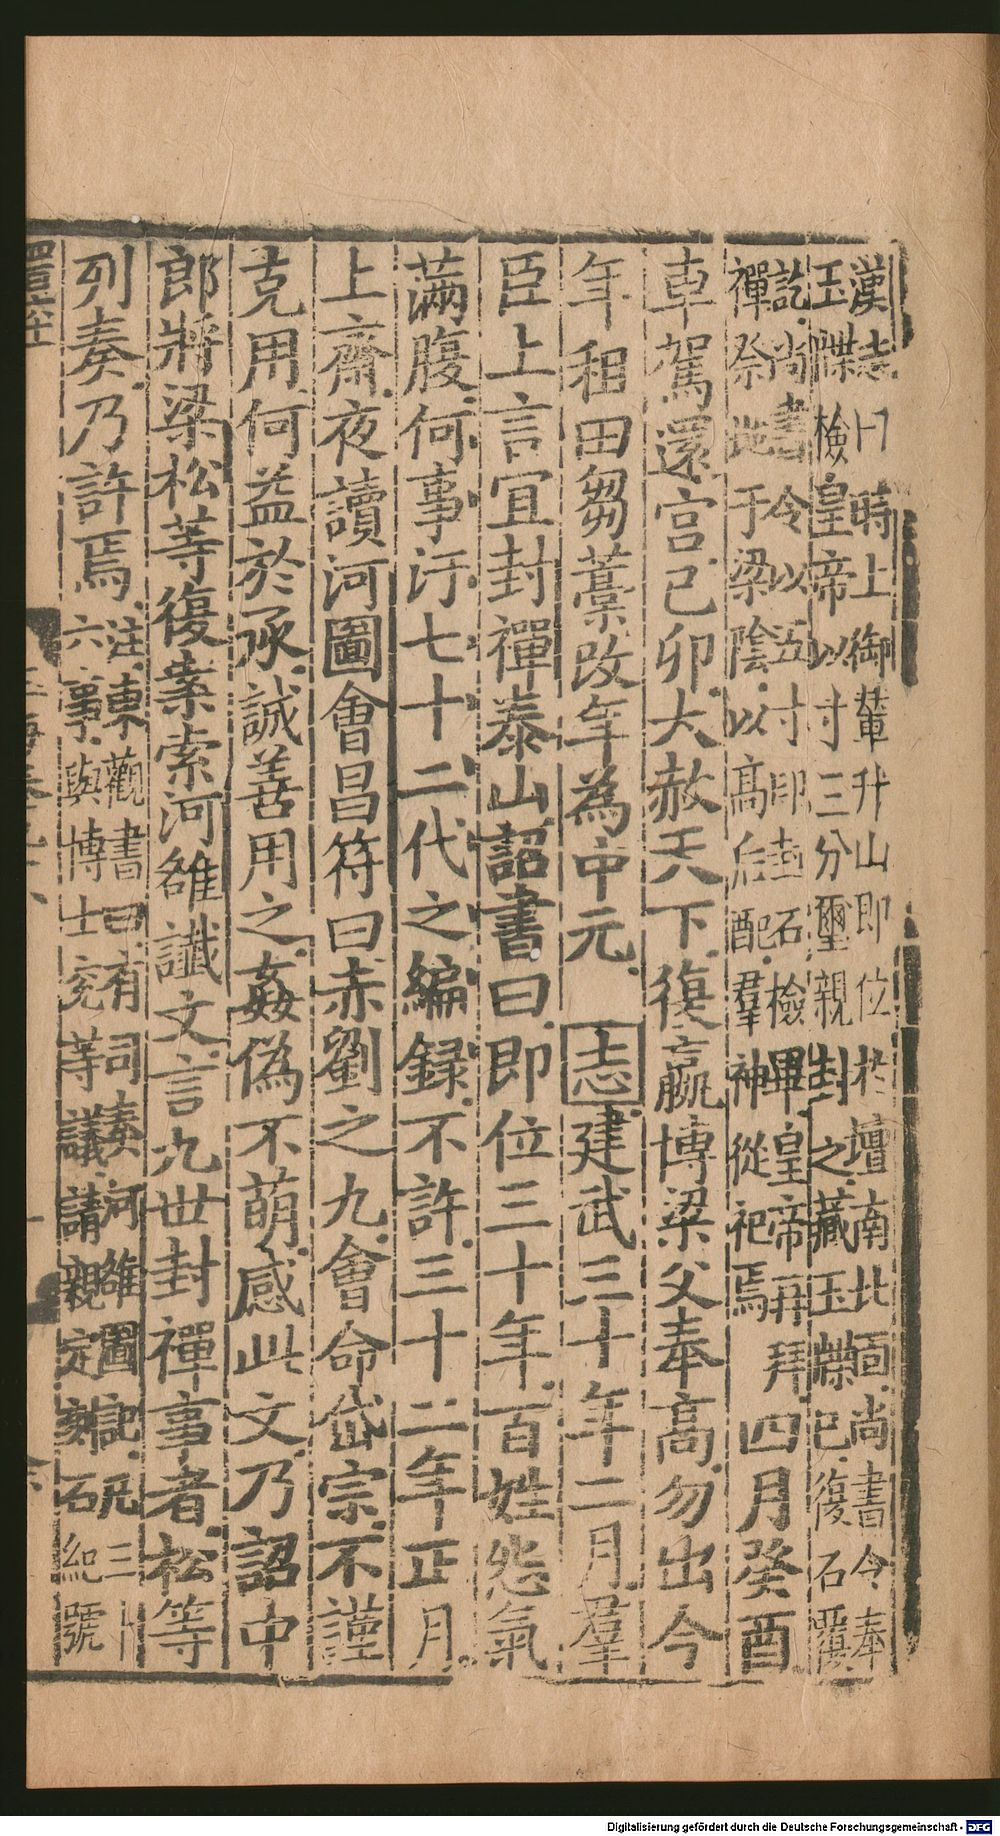 漢志曰時上御輦升山即位於壇南北面尚書令奉
玉牒檢皇帝以寸三分璽親封之藏玉牒已復石覆
訖尚書令以五寸印封石檢畢皇帝再拜
禪祭地于梁陰以高后配羣神從祀焉
四月癸酉
車駕還宫己卯大赦天下復嬴博梁父奉高勿出今
年租田芻藁改年為中元 志建武三十年二月羣
臣上言宜封禪泰山詔書曰即位三十年百姓怨氣
滿腹何事汙七十二代之編録不許三十二年正月
上齋夜讀河圖會昌符曰赤劉之九會命岱宗不謹
克用何益於承誠善用之姦偽不萌感此文乃詔中
郎將梁松等復案索河雒讖文言九世封禪事者松等
列奏乃許焉
注東觀書曰有司奏河雒圖記凡三十
六事與博士充等議請親定刻石紀號
Digitalisierung gefördert durch die Deutsche Forschungsgemeinschaft - DFG